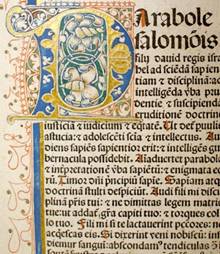 Arabole
salomōis
filij dauid regis isra
hel ad sciēdā sapien
tiam & disciplinā:ad
intelligēda v̄ba pru
dentie & suscipiendā
eruditionē doctrin
iusticiā & iudiciū & eq̄t
astucia:& adolescēti sciā & intellectus. A
iens sapiens sapientior erit:& intelligēs gu
bernacula possidebit. Aīaduertet parabolam
& īterpretationē v̄ba sapiētū:& enigmata eo
rū. Timor dñi p̄ncipiū sapie. Sapiam
doctrinā stulti despiciūt. Audi fili mi di
plinā pr̄is tui:& ne dimittas legem matris
tue:ut addat̄ grā capiti tuo:& torques collo
tuo. Fili mi si te lactauerint pccōres:ne
acq̄escas eis. Si dixerint veni nobiscū:
demur sangui:abscondamꝰ tendiculas